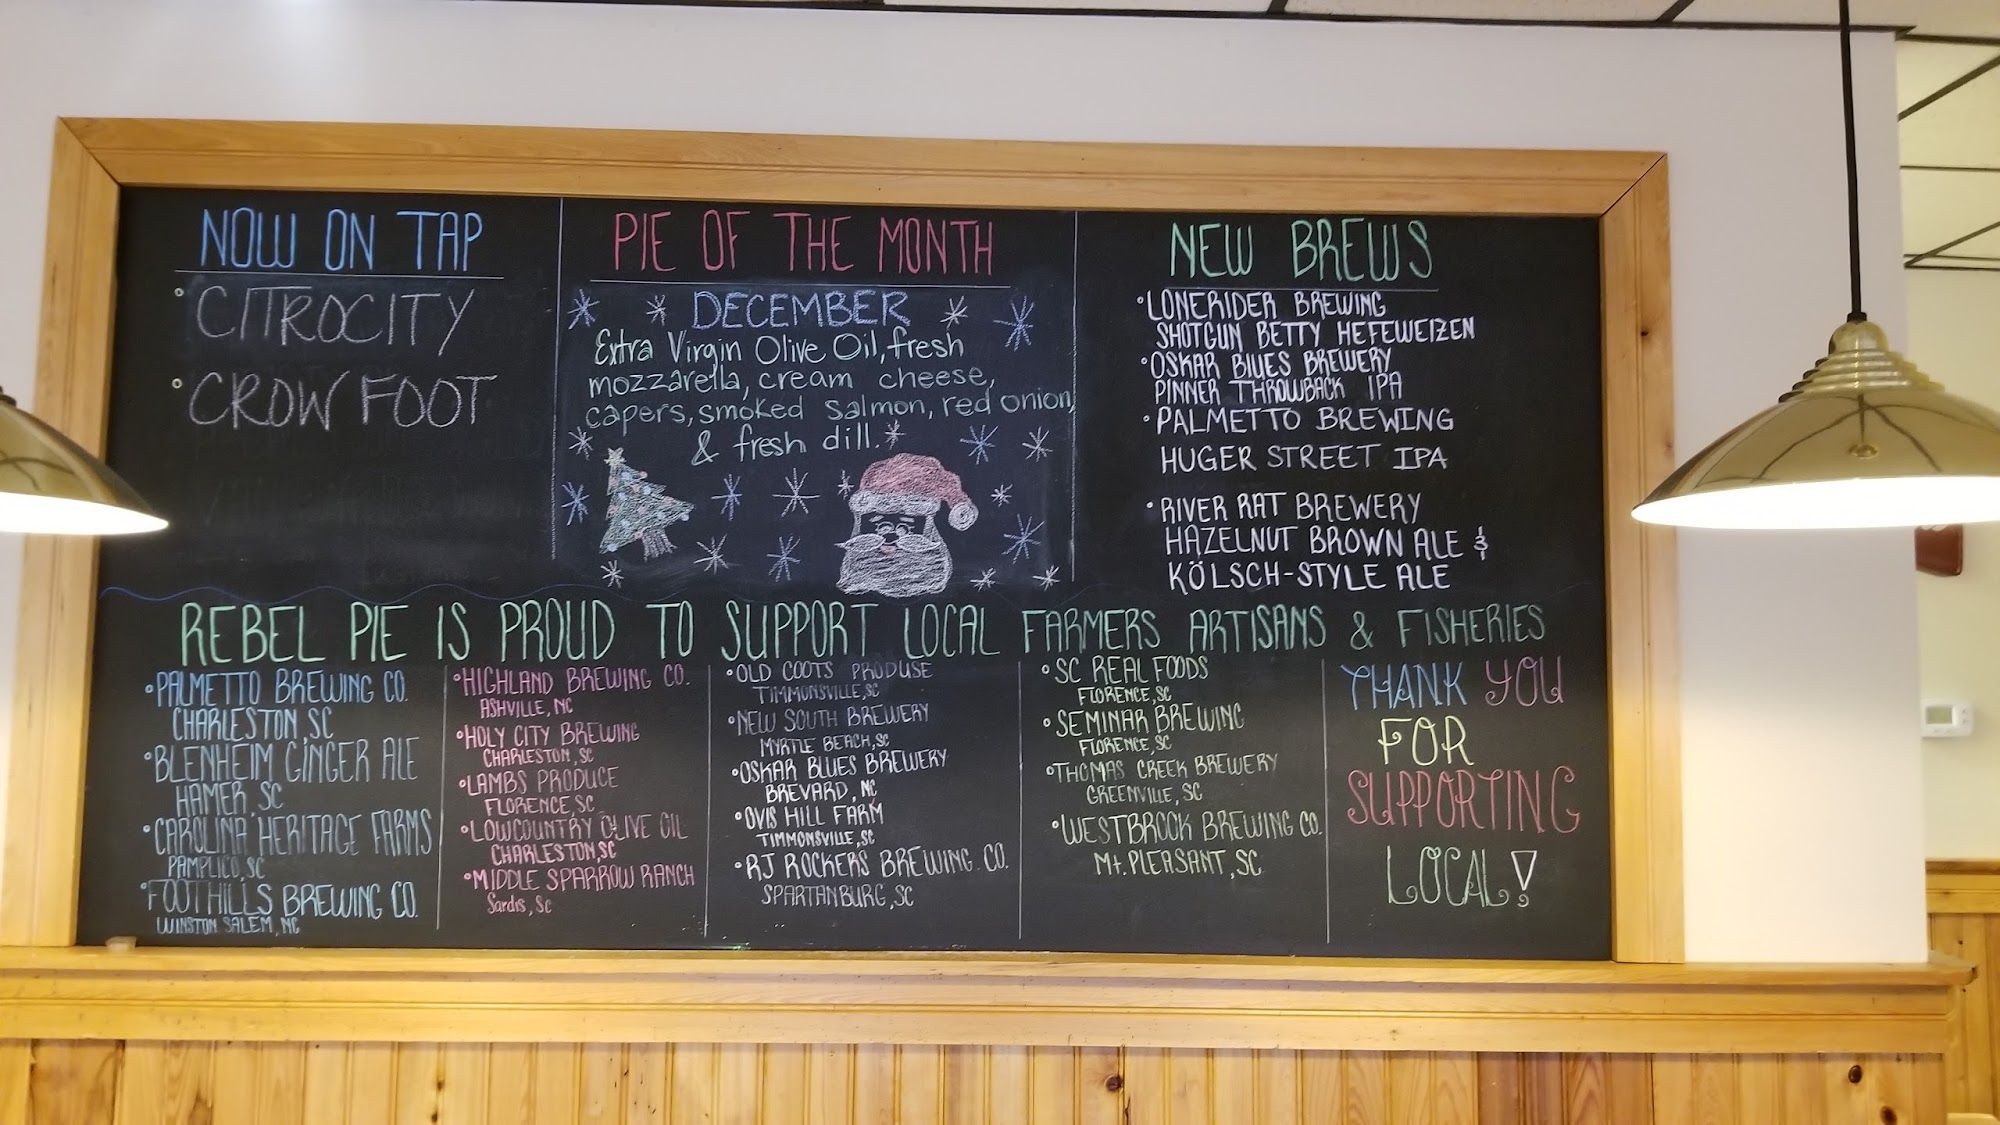 NOW ON TAP
• CITROCITY
• CROW FOOT
PIE OF THE MONTH
DECEMBER
Extra Virgin Olive Oil, fresh
mozzarella, cream cheese,
capers, smoked salmon, red onion,
& fresh dill.
NEW BREWS
• LONERIDER BREWING
SHOTGUN BETTY HEFEWEIZEN
• OSKAR BLUES BREWERY
PINNER THROWBACK IPA
• PALMETTO BREWING
HUGER STREET IPA
• RIVER RAT BREWERY
HAZELNUT BROWN ALE &
KÖLSCH-STYLE ALE
REBEL PIE IS PROUD TO SUPPORT LOCAL FARMERS ARTISANS & FISHERIES
• PALMETTO BREWING CO.
CHARLESTON, SC
• BLENHEIM GINGER ALE
HAMER, SC
• CAROLINA HERITAGE FARMS
PAMPLICO, SC
• FOOTHILLS BREWING CO.
WINSTON SALEM, NC
• HIGHLAND BREWING CO.
ASHVILLE, NC
• HOLY CITY BREWING
CHARLESTON, SC
• LAMBS PRODUCE
FLORENCE, SC
• LOWCOUNTRY OLIVE OIL
CHARLESTON, SC
• MIDDLE SPARROW RANCH
Sardis, SC
• OLD COOTS PRODUSE
TIMMONSVILLE, SC
• NEW SOUTH BREWERY
MYRTLE BEACH, SC
• OSKAR BLUES BREWERY
BREVARD, NC
• OVIS HILL FARM
TIMMONSVILLE, SC
• RJ ROCKERS BREWING CO.
SPARTANBURG, SC
• SC REAL FOODS
FLORENCE, SC
• SEMINAR BREWING
FLORENCE, SC
• THOMAS CREEK BREWERY
GREENVILLE, SC
• WESTBROOK BREWING CO.
Mt. PLEASANT, SC
THANK YOU
FOR
SUPPORTING
LOCAL!